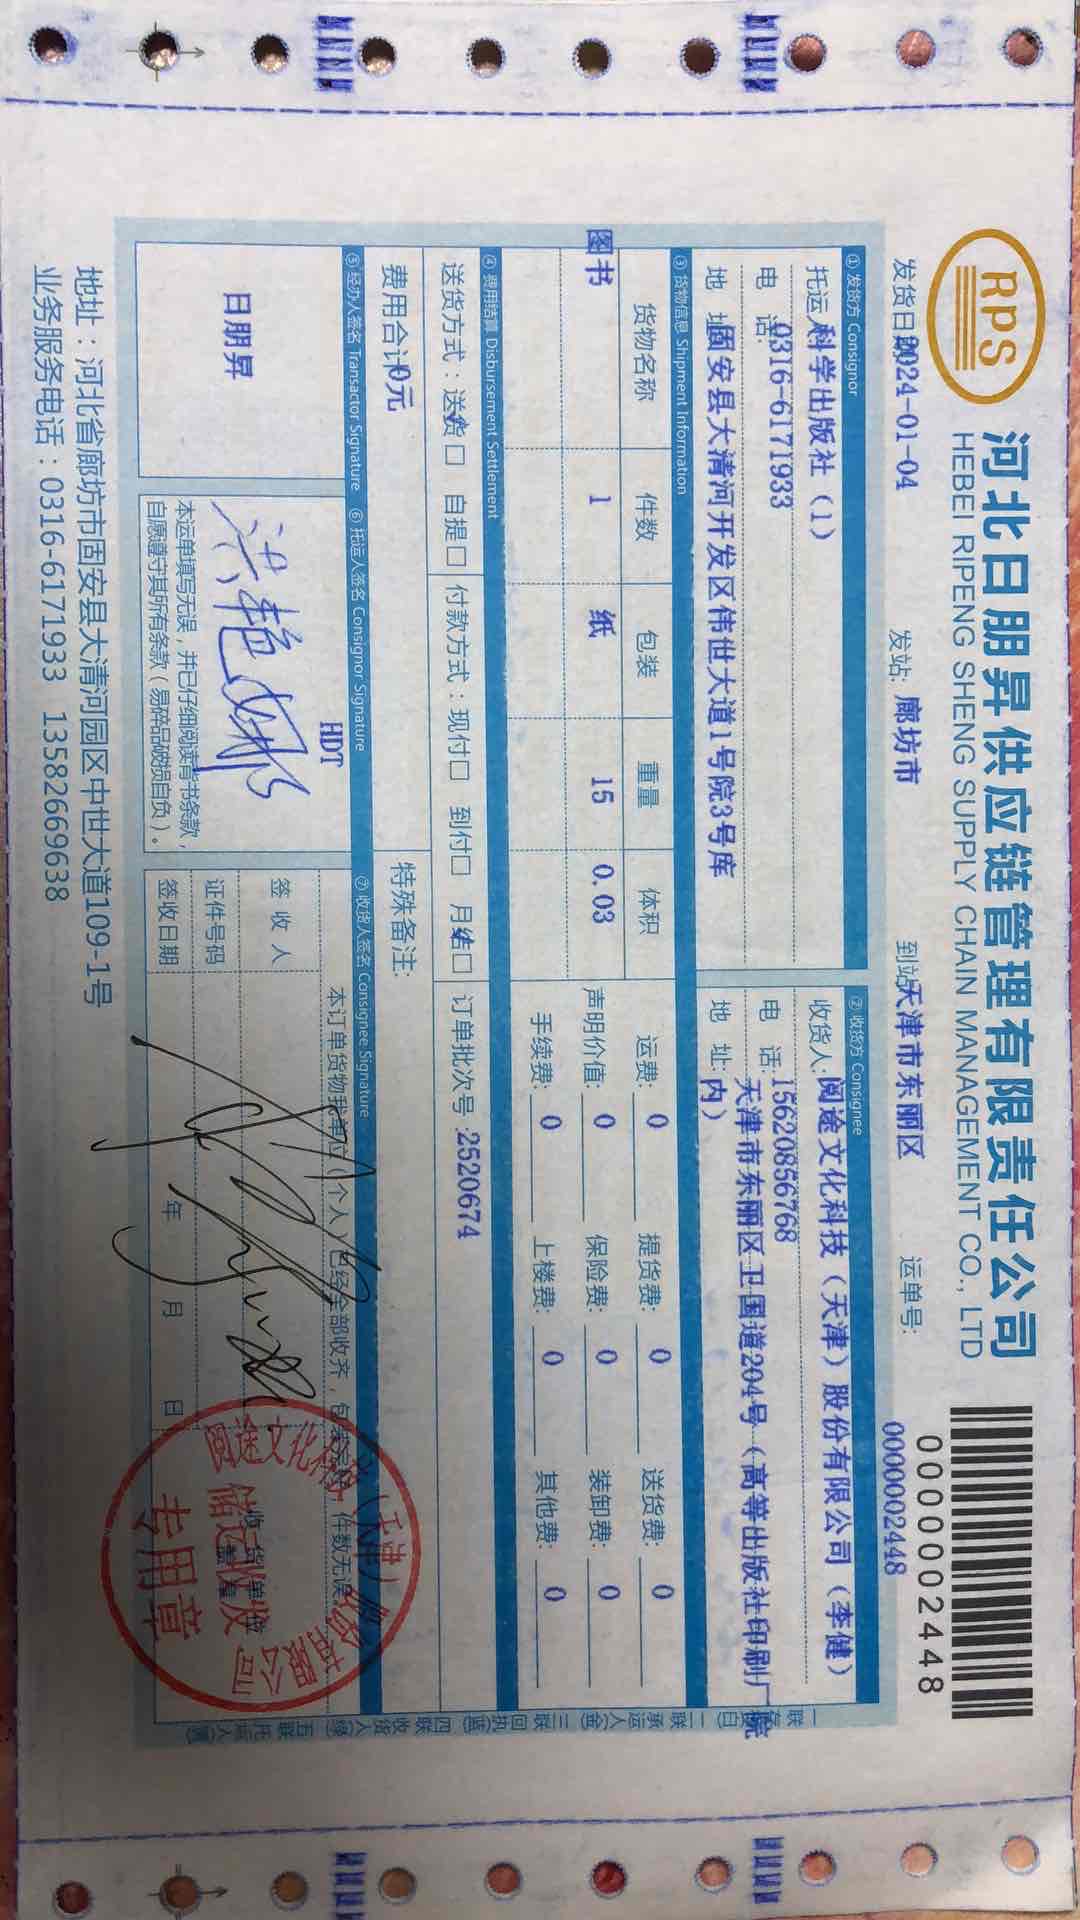 RPS
河北日朋昇供应链管理有限责任公司
HEBEI RIPENG SHENG SUPPLY CHAIN MANAGEMENT CO., LTD
0000002448
发货日期:2024-01-04 发站: 廊坊市 到站:天津市东丽区 运单号: 0000002448
① 发货方 Consignor
托运人:科学出版社（1）
电 话:0316-6171933
地 址:固安县大清河开发区伟世大道1号院3号库
② 收货方 Consignee
收货人:阅途文化科技（天津）股份有限公司（李健）
电 话:15620856768
地 址:天津市东丽区卫国道204号（高等出版社印刷厂院
内）
③ 货物信息 Shipment Information
货物名称 件数 包装 重量 体积
图书 1 纸 15 0.03
运费: 0 提货费: 0 送货费: 0
声明价值: 0 保险费: 0 装卸费: 0
手续费: 0 上楼费: 0 其他费: 0
④ 费用结算 Disbursement Settlement
送货方式：送货□ 自提□ 付款方式：现付□ 到付□ 月结□ 订单批次号:2520674
费用合计:0元
特殊备注:
⑤ 经办人签名 Transactor Signature ⑥ 托运人签名 Consignor Signature ⑦ 收货人签名 Consignee Signature
日朋昇
HDT
洪艳娜
本运单填写无误，并已仔细阅读背书条款，
自愿遵守其所有条款（易碎品破损自负）。
本订单货物我单位（个人）已经全部收齐，包装完好，件数无误
签 收 人
证件号码
签收日期 年 月 日
阅途文化科技（天津）股份有限公司
储运收发
专用章
地址：河北省廊坊市固安县大清河园区中世大道109-1号
业务服务电话：0316-6171933 13582669638